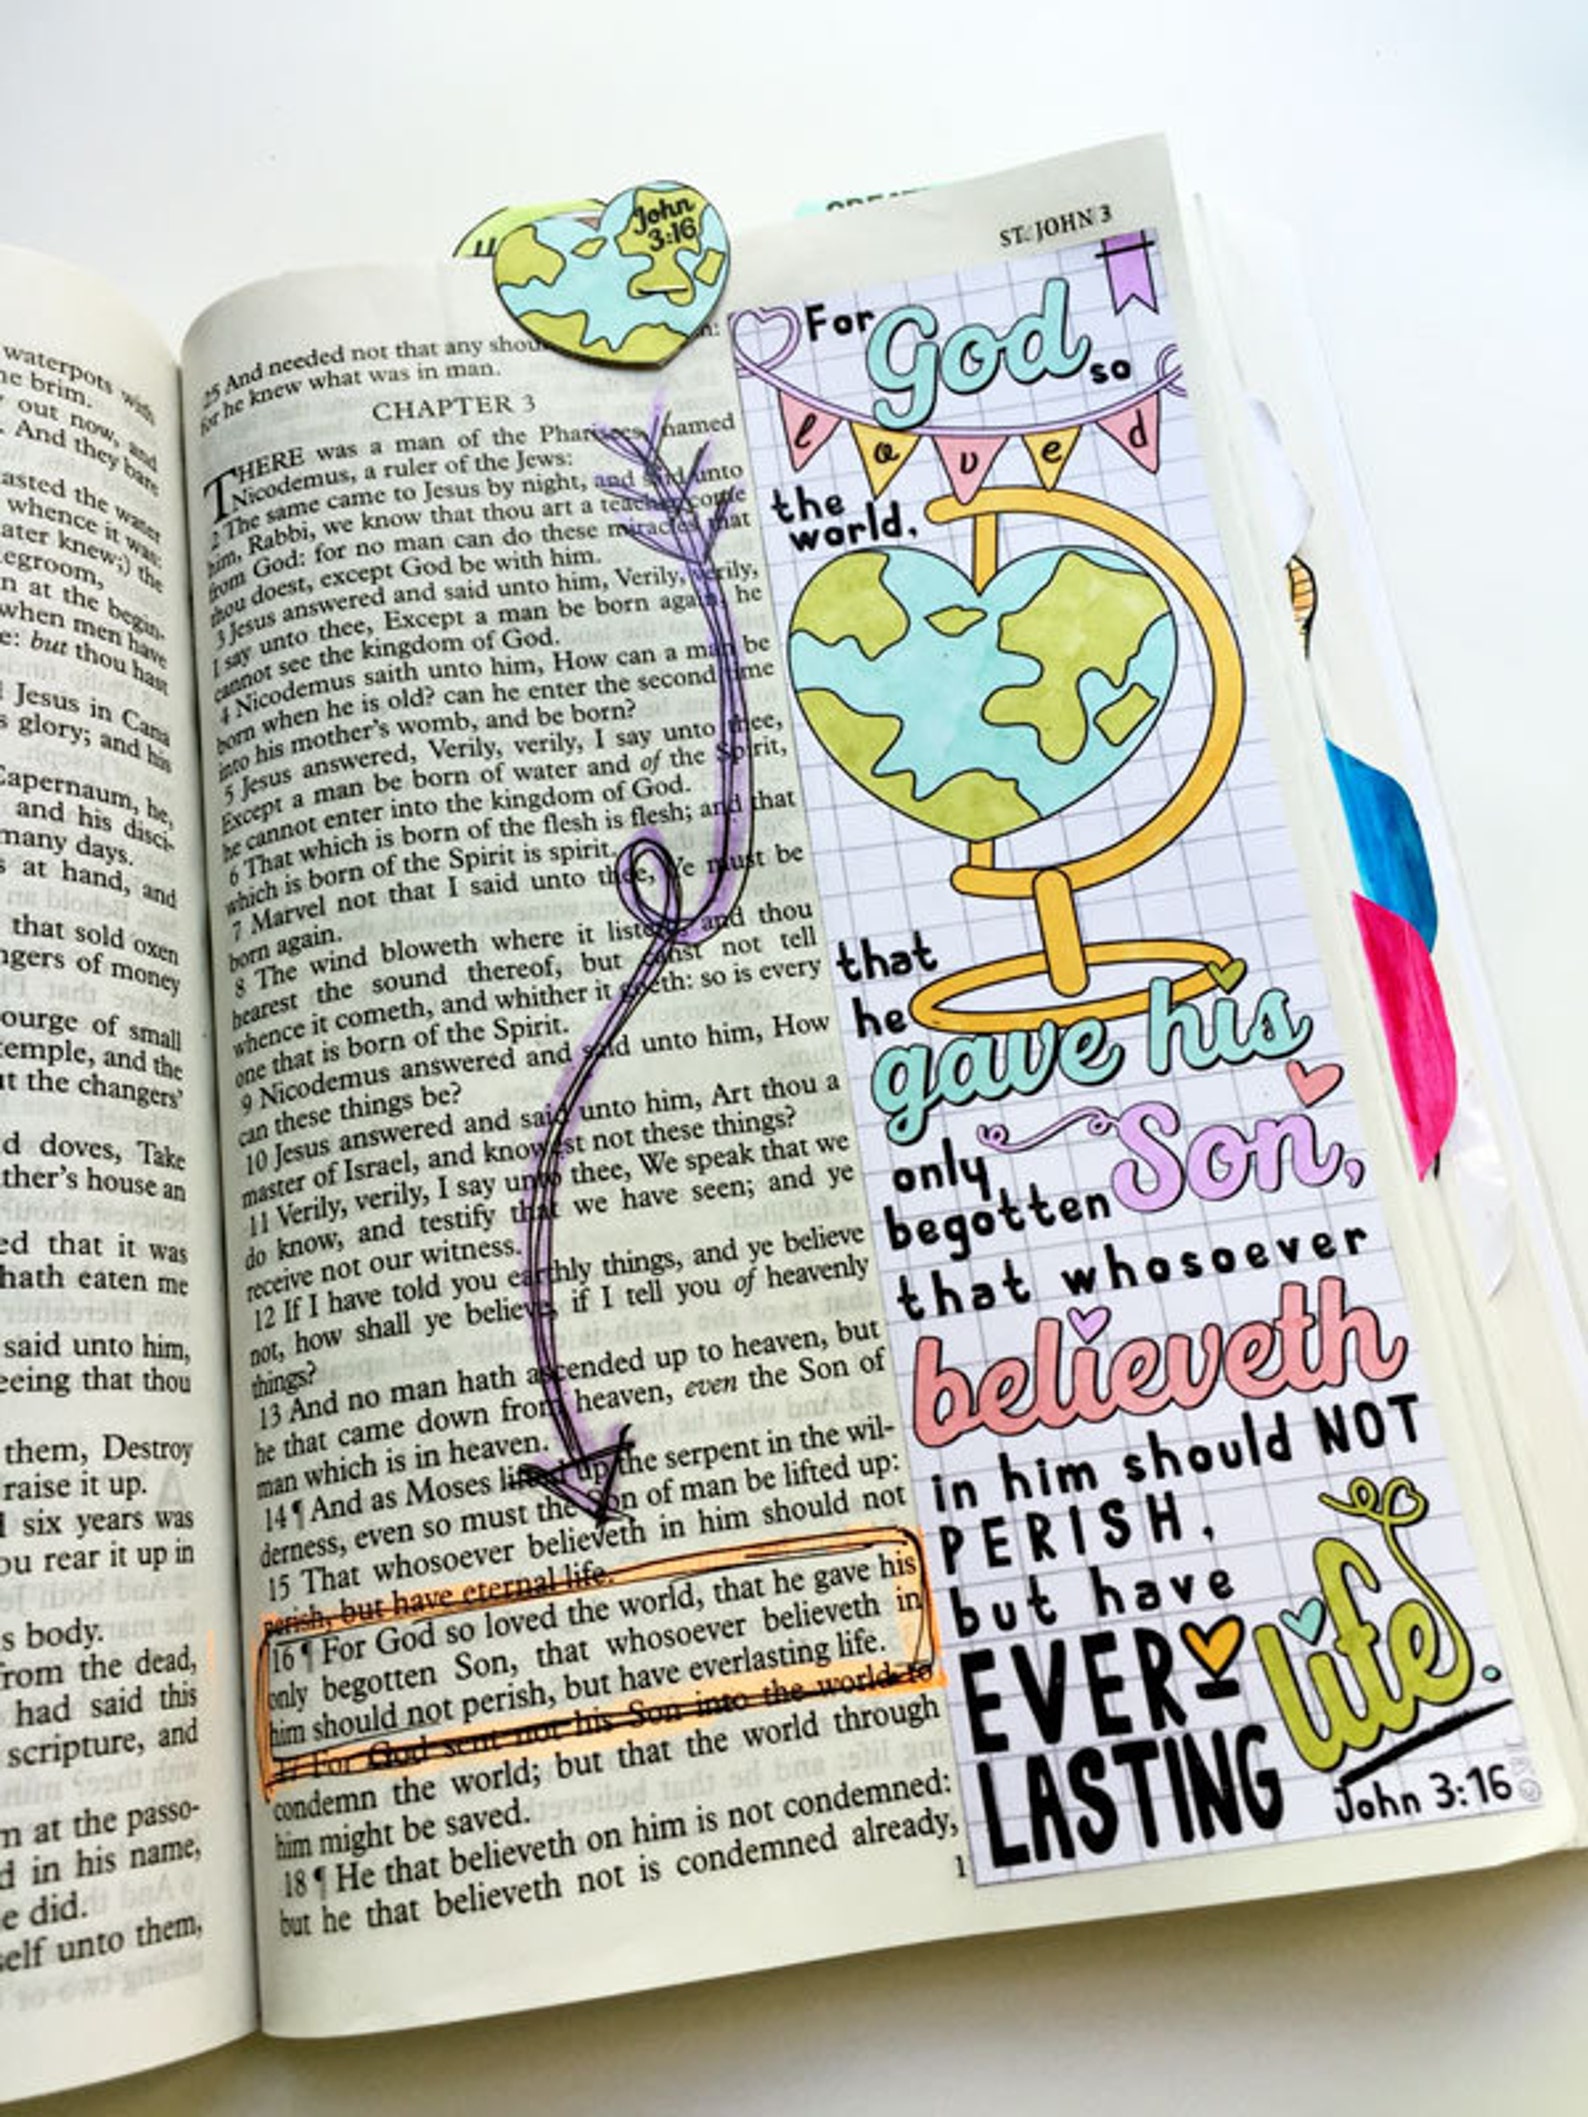 waterpots with
he brim.
out now, and
. And they bare
asted the water
whence it was:
ater knew;) the
egroom,
n at the begin-
when men have
e: but thou hast
Jesus in Cana
s glory; and his
Capernaum, he,
and his disci-
many days.
s at hand, and
that sold oxen
ngers of money
ourge of small
temple, and the
ut the changers'
d doves, Take
ther's house an
ed that it was
hath eaten me
said unto him,
eeing that thou
them, Destroy
raise it up.
six years was
ou rear it up in
s body.
from the dead,
had said this
scripture, and
m at the passo-
d in his name,
e did.
self unto them,
John
3:16
ST. JOHN 3
25 And needed not that any shou
for he knew what was in man.
CHAPTER 3
THERE was a man of the Pharisees, named
Nicodemus, a ruler of the Jews:
2 The same came to Jesus by night, and said unto
him, Rabbi, we know that thou art a teacher come
from God: for no man can do these miracles that
thou doest, except God be with him.
3 Jesus answered and said unto him, Verily, verily,
I say unto thee, Except a man be born again, he
cannot see the kingdom of God.
4 Nicodemus saith unto him, How can a man be
born when he is old? can he enter the second time
into his mother's womb, and be born?
5 Jesus answered, Verily, verily, I say unto thee,
Except a man be born of water and of the Spirit,
he cannot enter into the kingdom of God.
6 That which is born of the flesh is flesh; and that
which is born of the Spirit is spirit.
7 Marvel not that I said unto thee, Ye must be
born again.
8 The wind bloweth where it listeth, and thou
hearest the sound thereof, but canst not tell
whence it cometh, and whither it goeth: so is every
one that is born of the Spirit.
9 Nicodemus answered and said unto him, How
can these things be?
10 Jesus answered and said unto him, Art thou a
master of Israel, and knowest not these things?
11 Verily, verily, I say unto thee, We speak that we
do know, and testify that we have seen; and ye
receive not our witness.
12 If I have told you earthly things, and ye believe
not, how shall ye believe, if I tell you of heavenly
things?
13 And no man hath ascended up to heaven, but
he that came down from heaven, even the Son of
man which is in heaven.
14 ¶ And as Moses lifted up the serpent in the wil-
derness, even so must the Son of man be lifted up:
15 That whosoever believeth in him should not
perish, but have eternal life.
16 ¶ For God so loved the world, that he gave his
only begotten Son, that whosoever believeth in
him should not perish, but have everlasting life.
17 For God sent not his Son into the world to
condemn the world; but that the world through
him might be saved.
18 ¶ He that believeth on him is not condemned:
but he that believeth not is condemned already,
1
For God so
loved
the
world,
that
he
gave his
only
begotten Son,
that whosoever
believeth
in him should NOT
PERISH,
but have
EVER-
LASTING life.
John 3:16